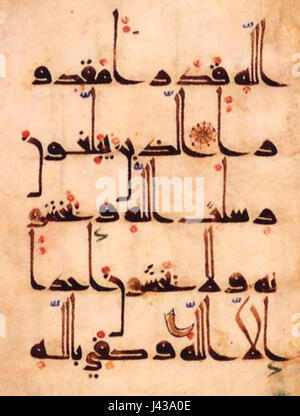 الله قدرا مقدو
را الذين يبلغون
رسلت الله ويخشو
نه ولا يخشون احدا
الا الله وكفى بالله
alamy - J43A0E